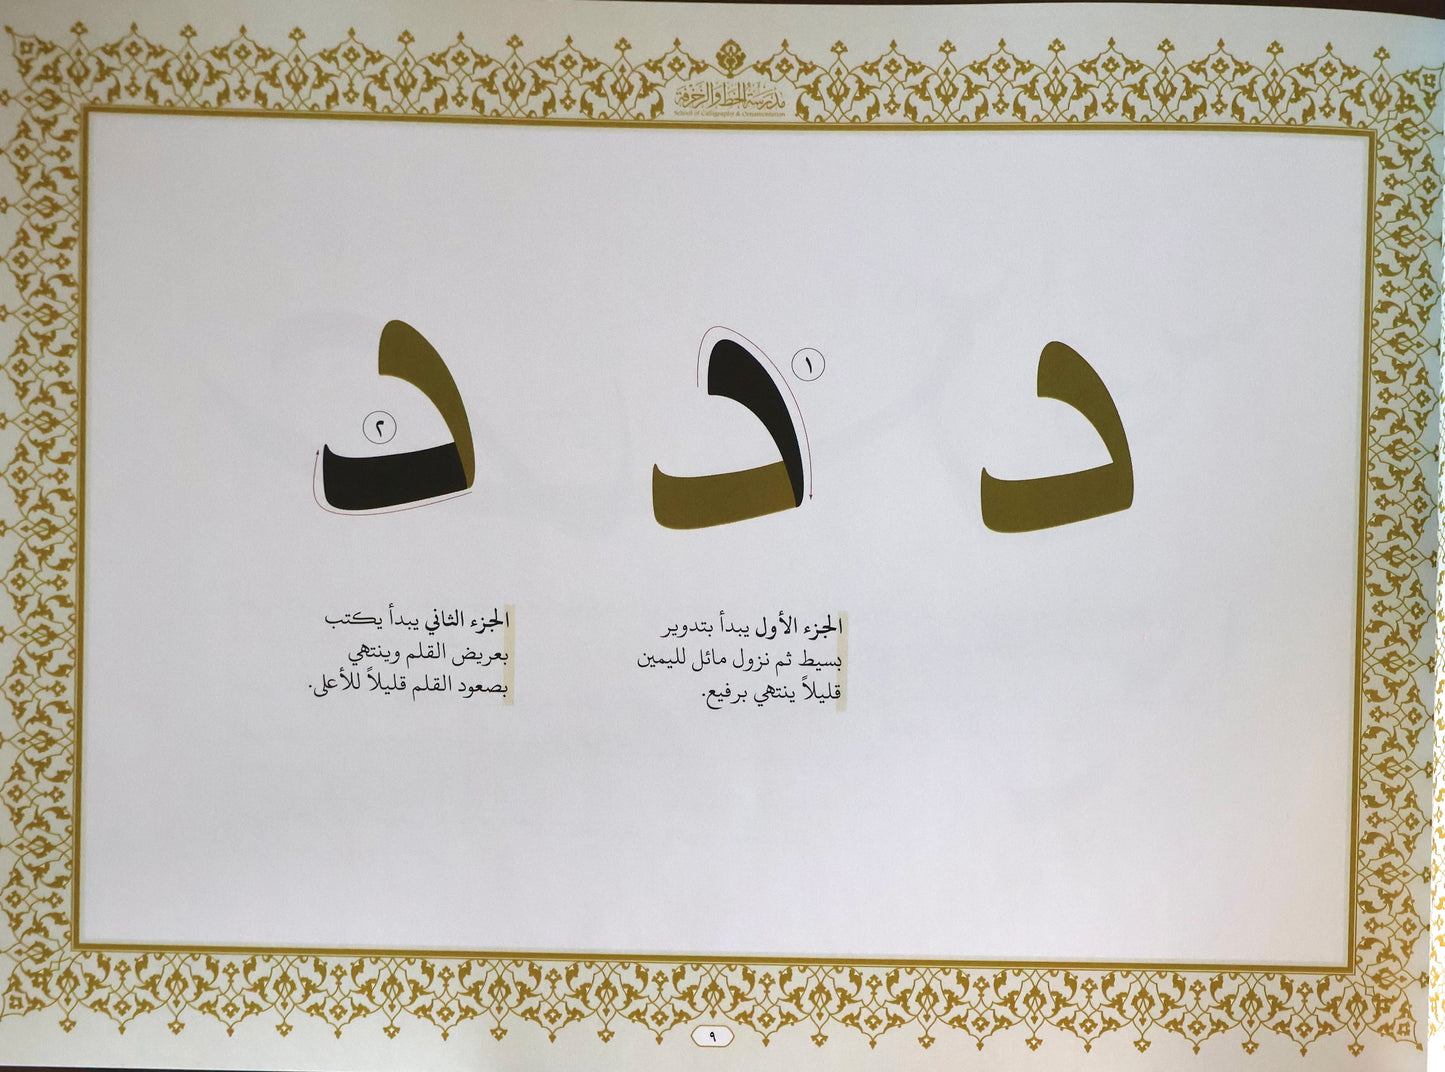 مدرسة الخط والزخرفة
School of Calligraphy & Ornamentation
د د د
١
٢
الجزء الأول يبدأ بتدوير
بسيط ثم نزول مائل لليمين
قليلاً ينتهي برفيع.
الجزء الثاني يبدأ يكتب
بعريض القلم وينتهي
بصعود القلم قليلاً للأعلى.
٩